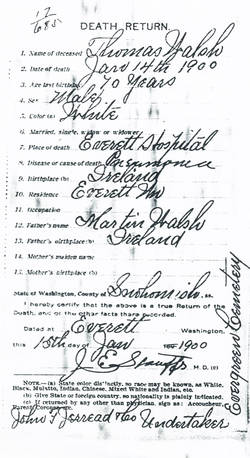 12
685
DEATH RETURN.
1. Name of deceased Thomas Walsh
2. Date of death Jan 14th 1900
3. Age last birthday 70 Years
4. Sex Male
5. Color (a) White
6. Married, single, widow or widower
7. Place of death Everett Hospital
8. Disease or cause of death Pneumonia
9. Birthplace (b) Ireland
10. Residence Everett Wn
11. Occupation
12. Father's name Martin Walsh
13. Father's birthplace (b) Ireland
14. Mother's maiden name
15. Mother's birthplace (b)
State of Washington, County of Snohomish, ss.
I hereby certify that the above is a true Return of the
Death, and of the other facts there recorded.
Dated at Everett Washington,
this 15th day Jan 1900
J E M. D. (c)
NOTE.—(a) State color distinctly, so race may be known, as White,
Black, Mulatto, Indian, Chinese, Mixed White and Indian, etc.
(b) Give State or foreign country, so nationality is plainly indicated.
(c) If returned by any other than physician, sign as: Accoucheur,
Parent, Coroner, etc.
John F Jerread & Co Undertaker
Evergreen Cemetery